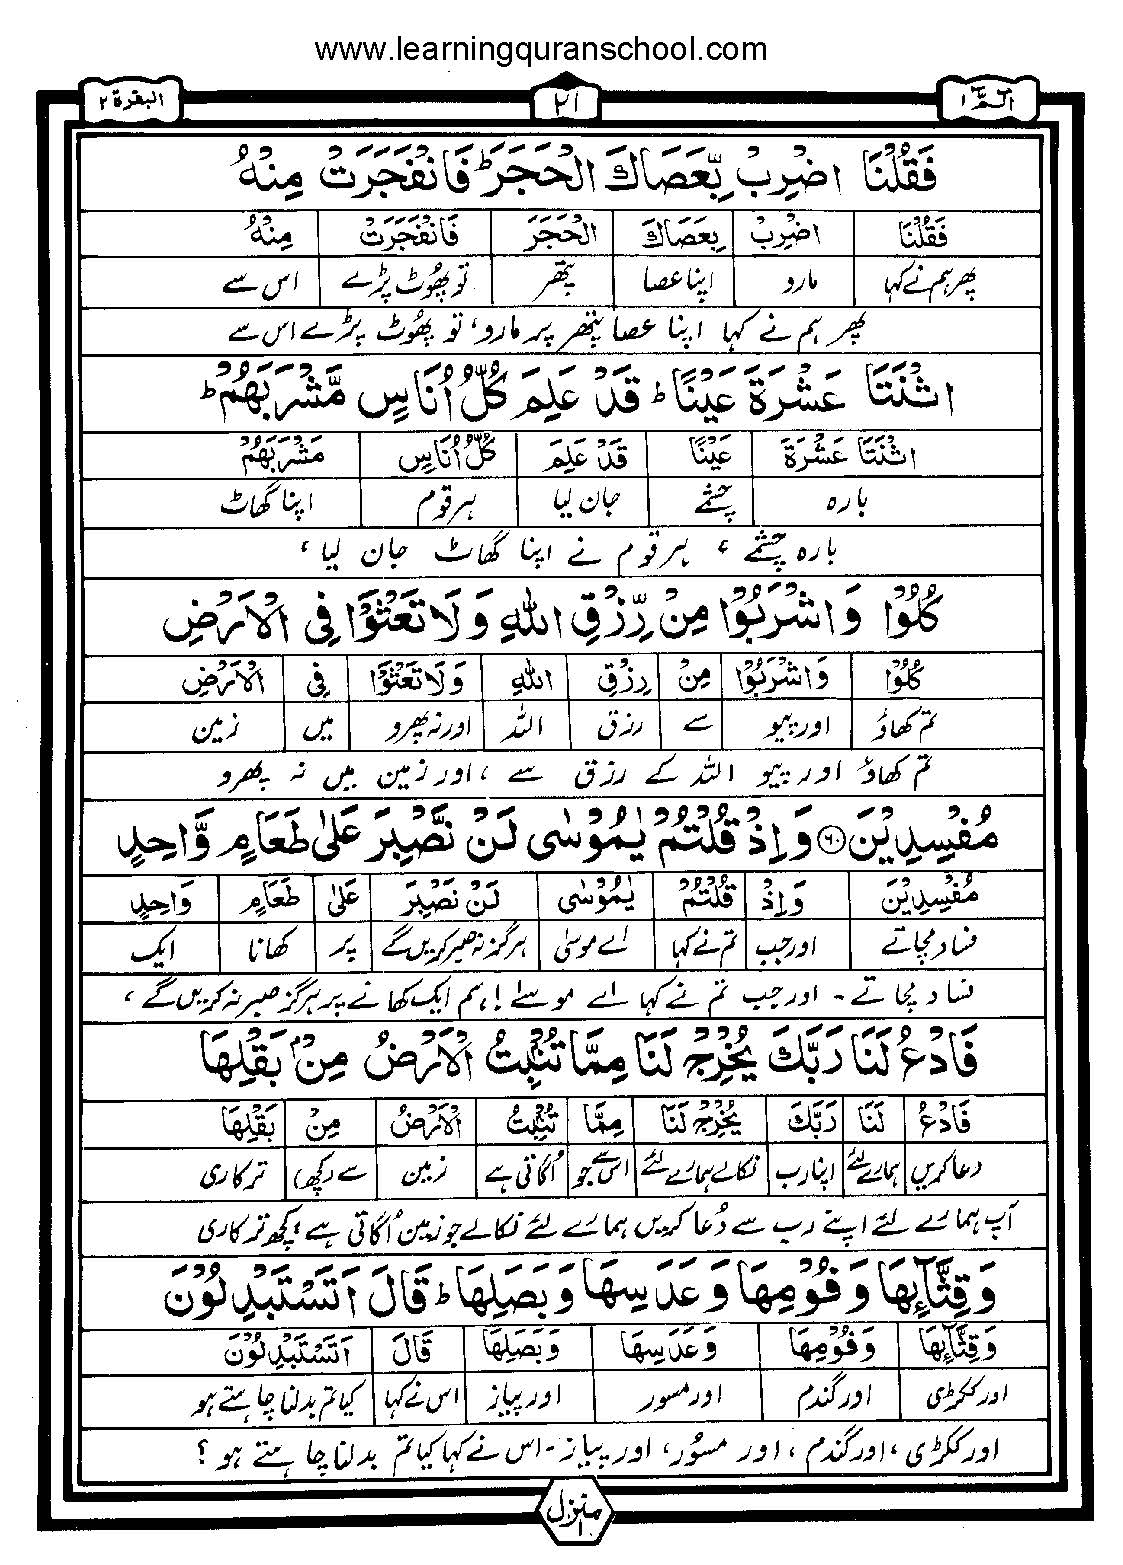 www.learningquranschool.com
الٓمّٓ ۱ ۲۱ البقرة ۲
فَقُلْنَا اضْرِبْ بِّعَصَاكَ الْحَجَرَ ؕ فَانْفَجَرَتْ مِنْهُ
فَقُلْنَا اضْرِبْ بِعَصَاكَ الْحَجَرَ فَانْفَجَرَتْ مِنْهُ
پھر ہم نے کہا مارو اپنا عصا پتھر تو پھوٹ پڑے اس سے
پھر ہم نے کہا اپنا عصا پتھر پر مارو، تو پھوٹ پڑے اس سے
اثْنَتَا عَشْرَةَ عَيْنًا ؕ قَدْ عَلِمَ كُلُّ اُنَاسٍ مَّشْرَبَهُمْ ؕ
اثْنَتَا عَشْرَةَ عَيْنًا قَدْ عَلِمَ كُلُّ اُنَاسٍ مَشْرَبَهُمْ
بارہ چشمے جان لیا ہر قوم اپنا گھاٹ
بارہ چشمے ، ہر قوم نے اپنا گھاٹ جان لیا ،
كُلُوْا وَاشْرَبُوْا مِنْ رِّزْقِ اللّٰهِ وَلَا تَعْثَوْا فِى الْاَرْضِ
كُلُوْا وَاشْرَبُوْا مِنْ رِزْقِ اللّٰهِ وَلَا تَعْثَوْا فِى الْاَرْضِ
تم کھاؤ اور پیو سے رزق اللہ اور نہ پھرو میں زمین
تم کھاؤ اور پیو اللہ کے رزق سے ، اور زمین میں نہ پھرو
مُفْسِدِيْنَ ۶۰ وَاِذْ قُلْتُمْ يٰمُوْسٰى لَنْ نَّصْبِرَ عَلٰى طَعَامٍ وَّاحِدٍ
مُفْسِدِيْنَ وَاِذْ قُلْتُمْ يٰمُوْسٰى لَنْ نَصْبِرَ عَلٰى طَعَامٍ وَاحِدٍ
فساد مچاتے اور جب تم نے کہا اے موسیٰ ہرگز نہ صبر کریں گے پر کھانا ایک
فساد مچاتے ۔ اور جب تم نے کہا اے موسےٰ ! ہم ایک کھانے پر ہرگز صبر نہ کریں گے ،
فَادْعُ لَنَا رَبَّكَ يُخْرِجْ لَنَا مِمَّا تُنْۢبِتُ الْاَرْضُ مِنْۢ بَقْلِهَا
فَادْعُ لَنَا رَبَّكَ يُخْرِجْ لَنَا مِمَّا تُنْۢبِتُ الْاَرْضُ مِنْ بَقْلِهَا
دعا کریں ہمارے لئے اپنا رب نکالے ہمارے لئے اس سے جو اُگاتی ہے زمین سے (کچھ) ترکاری
آپ ہمارے لئے اپنے رب سے دُعا کریں ہمارے لئے نکالے جو زمین اُگاتی ہے ؛ کچھ ترکاری
وَقِثَّآئِهَا وَفُوْمِهَا وَعَدَسِهَا وَبَصَلِهَا ؕ قَالَ اَتَسْتَبْدِلُوْنَ
وَقِثَّآئِهَا وَفُوْمِهَا وَعَدَسِهَا وَبَصَلِهَا قَالَ اَتَسْتَبْدِلُوْنَ
اور ککڑی اور گندم اور مسور اور پیاز اس نے کہا کیا تم بدلنا چاہتے ہو
اور ککڑی ، اور گندم ، اور مسوُر ، اور پیاز ۔ اس نے کہا کیا تم بدلنا چاہتے ہو ؟
منزل ۱